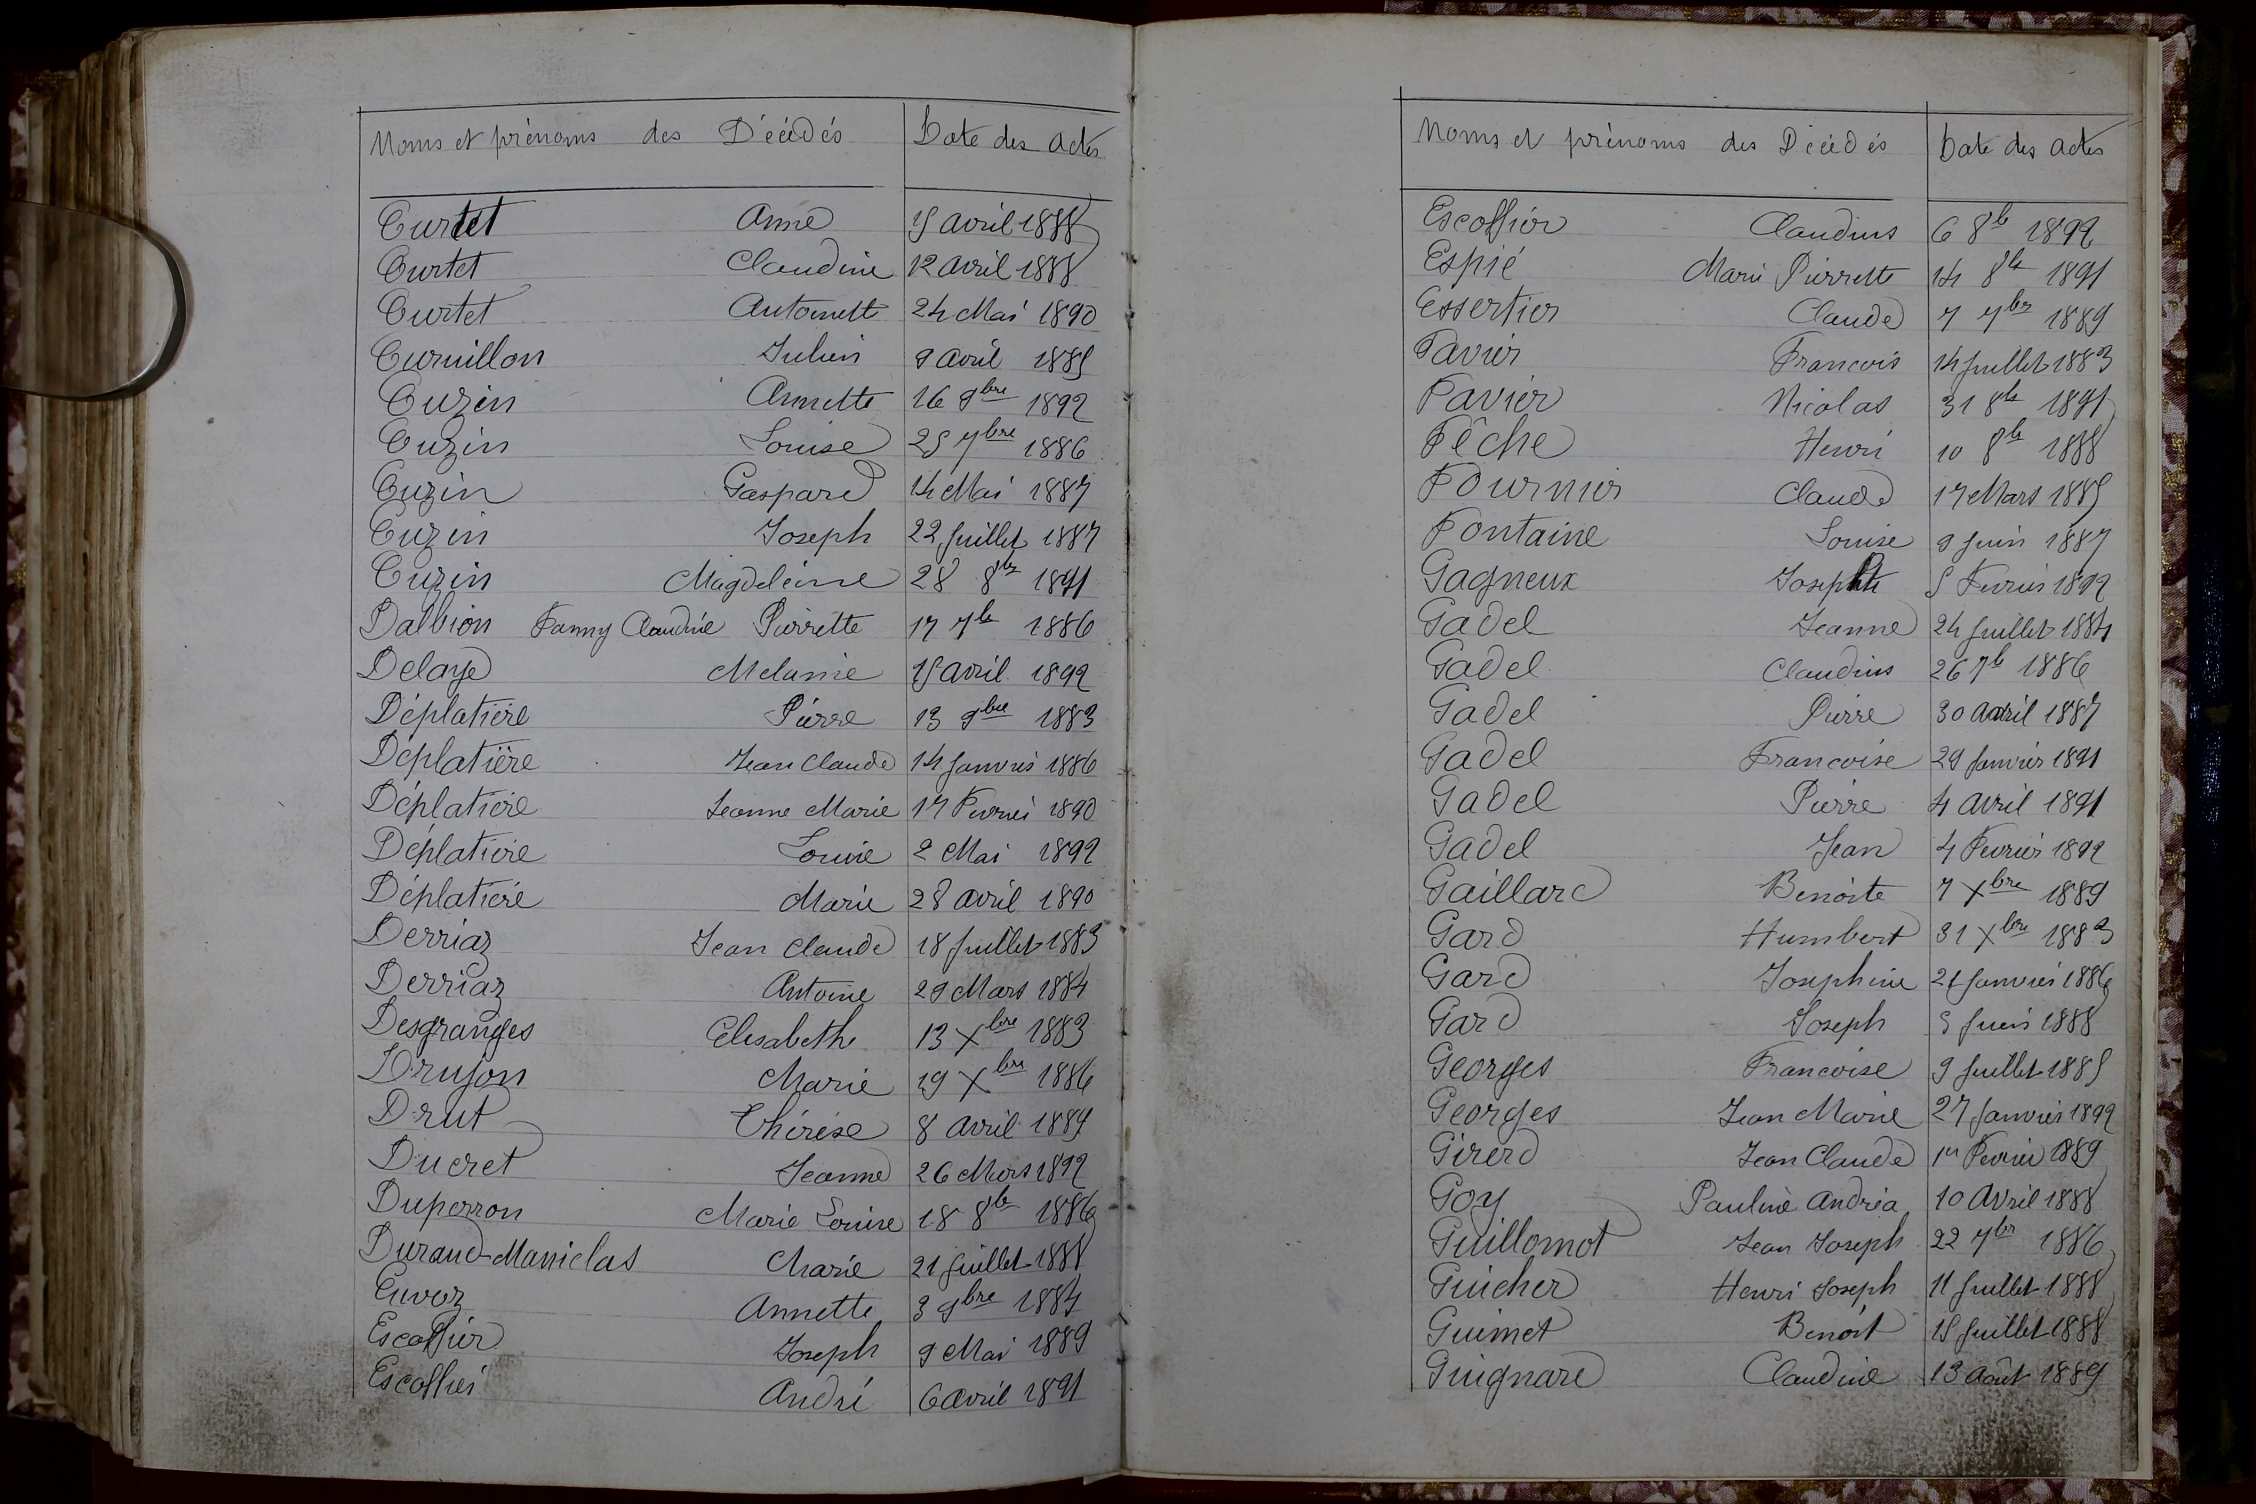 Noms et prénoms des Décédés Date des actes
Curtet Anne 15 avril 1888
Curtet Claudine 12 avril 1888
Curtet Antoinette 24 Mai 1890
Curnillon Julien 9 avril 1885
Cuzin Annette 16 9bre 1892
Cuzin Louise 25 7bre 1886
Cuzin Gaspard 14 Mai 1887
Cuzin Joseph 22 Juillet 1887
Cuzin Magdeleine 28 8bre 1891
Dalbion Fanny Claudine Pierrette 17 7bre 1886
Delaye Melanie 15 avril 1892
Déplatière Pierre 13 9bre 1883
Déplatière Jean Claude 14 Janvier 1886
Déplatière Jeanne Marie 17 Fevrier 1890
Déplatière Louise 2 Mai 1892
Déplatière Marie 28 avril 1890
Derriaz Jean Claude 18 Juillet 1883
Derriaz Antoine 29 Mars 1884
Desgranges Elisabeth 13 Xbre 1883
Drujon Marie 19 Xbre 1886
Drut Thérèse 8 avril 1889
Ducret Jeanne 26 Mars 1892
Duperron Marie Louise 18 8bre 1886
Durand-Maniclas Marie 21 Juillet 1888
Annette 3 9bre 1884
Escoffier Joseph 9 Mai 1889
Escoffier André 6 avril 1891
Noms et prénoms des Décédés Date des actes
Escoffier Claudius 6 8bre 1892
Espié Marie Pierrette 14 8bre 1891
Essertier Claude 7 7bre 1889
Favier Francois 14 Juillet 1883
Favier Nicolas 31 8bre 1891
Fêche Henri 10 8bre 1888
Fournier Claude 17 Mars 1885
Fontaine Louise 9 Juin 1887
Gagneux Josephte 5 Fevrier 1892
Gadel Jeanne 24 Juillet 1884
Gadel Claudius 26 7bre 1886
Gadel Pierre 30 avril 1887
Gadel Francoise 29 Janvier 1891
Gadel Pierre 4 avril 1891
Gadel Jean 4 Fevrier 1892
Gaillard Benoite 7 Xbre 1889
Gard Humbert 31 Xbre 1883
Gard Josephine 21 Janvier 1886
Gard Joseph 5 Juin 1888
Georges Francoise 9 Juillet 1885
Georges Jean Marie 27 Janvier 1892
Girerd Jean Claude 1er Fevrier 1889
Goy Pauline Andréa 10 Avril 1888
Guillomot Jean Joseph 22 7bre 1886
Guicher Henri Joseph 11 Juillet 1888
Guimet Benoit 15 Juillet 1888
Guignard Claudine 13 août 1889